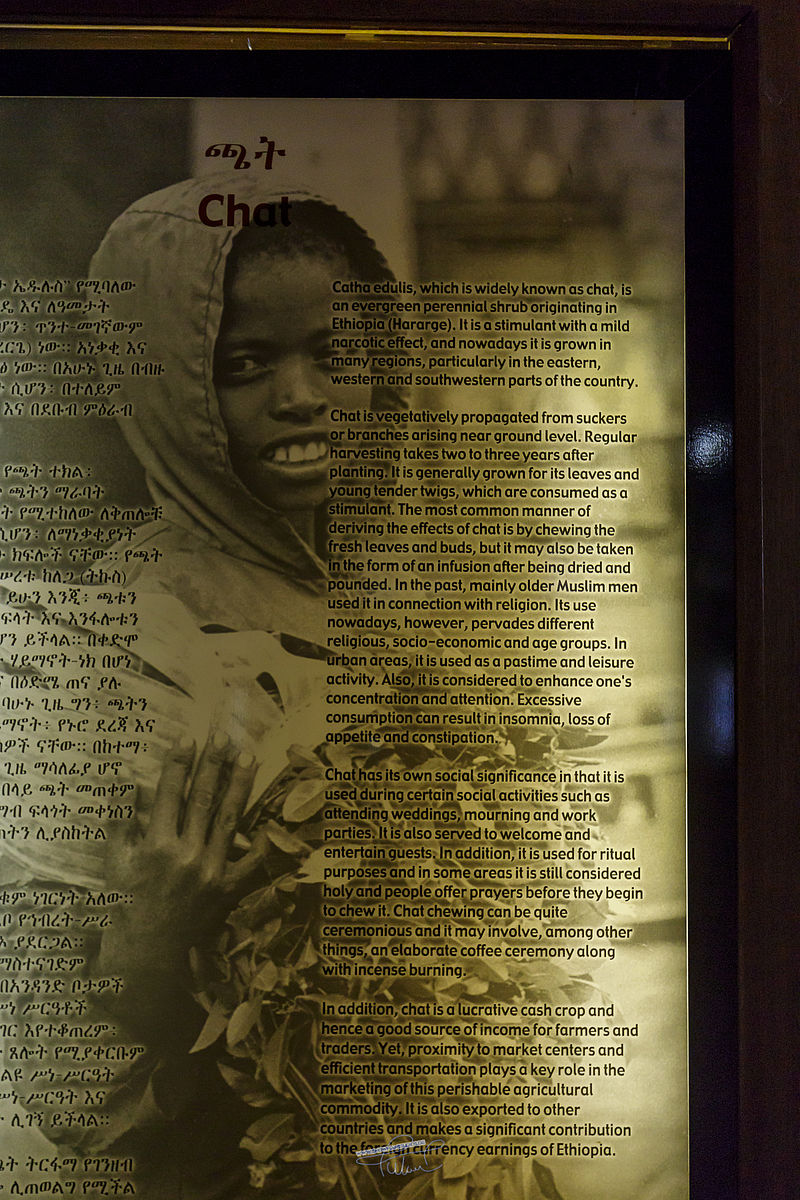 ጫት
Chat
ኤዱሉስ" የሚባለው
እና ለዓመታት
ጥንተ-መገኛውም
ነው። አነቃቂ እና
ነው። በአሁኑ ጊዜ በብዙ
ሲሆን፡ በተለይም
እና በደቡብ ምዕራብ
የጫት ተክል፡
ጫትን ማራባት
የሚተከለው ለቅጠሎቹ
ለማነቃቂያነት
ክፍሎች ናቸው። የጫት
ከለጋ (ትኩስ)
ይሁን እንጂ፡ ጫቱን
ፍላት እና እንፋሎቱን
ይችላል። በቀድሞ
ሃይማኖት-ነክ በሆነ
በዕድሜ ጠና ያሉ
ጊዜ ግን፡ ጫትን
የኑሮ ደረጃ እና
ናቸው። በከተማ፡
ጊዜ ማሳለፊያ ሆኖ
በላይ ጫት መጠቀም
ፍላጎት መቀነስን
ሊያስከትል
ነገርነት አለው።
የኅብረት-ሥራ
ያደርጋል።
ማስተናገድም
በአንዳንድ ቦታዎች
ሥርዓቶች
እየተቆጠረም፡
ጸሎት የሚያቀርቡም
ሥነ-ሥርዓት
ሥነ-ሥርዓት እና
ሊገኝ ይችላል።
ትርፋማ የገንዘብ
ሊጠወልግ የሚችል
Catha edulis, which is widely known as chat, is
an evergreen perennial shrub originating in
Ethiopia (Hararge). It is a stimulant with a mild
narcotic effect, and nowadays it is grown in
many regions, particularly in the eastern,
western and southwestern parts of the country.
Chat is vegetatively propagated from suckers
or branches arising near ground level. Regular
harvesting takes two to three years after
planting. It is generally grown for its leaves and
young tender twigs, which are consumed as a
stimulant. The most common manner of
deriving the effects of chat is by chewing the
fresh leaves and buds, but it may also be taken
in the form of an infusion after being dried and
pounded. In the past, mainly older Muslim men
used it in connection with religion. Its use
nowadays, however, pervades different
religious, socio-economic and age groups. In
urban areas, it is used as a pastime and leisure
activity. Also, it is considered to enhance one's
concentration and attention. Excessive
consumption can result in insomnia, loss of
appetite and constipation.
Chat has its own social significance in that it is
used during certain social activities such as
attending weddings, mourning and work
parties. It is also served to welcome and
entertain guests. In addition, it is used for ritual
purposes and in some areas it is still considered
holy and people offer prayers before they begin
to chew it. Chat chewing can be quite
ceremonious and it may involve, among other
things, an elaborate coffee ceremony along
with incense burning.
In addition, chat is a lucrative cash crop and
hence a good source of income for farmers and
traders. Yet, proximity to market centers and
efficient transportation plays a key role in the
marketing of this perishable agricultural
commodity. It is also exported to other
countries and makes a significant contribution
to the foreign currency earnings of Ethiopia.